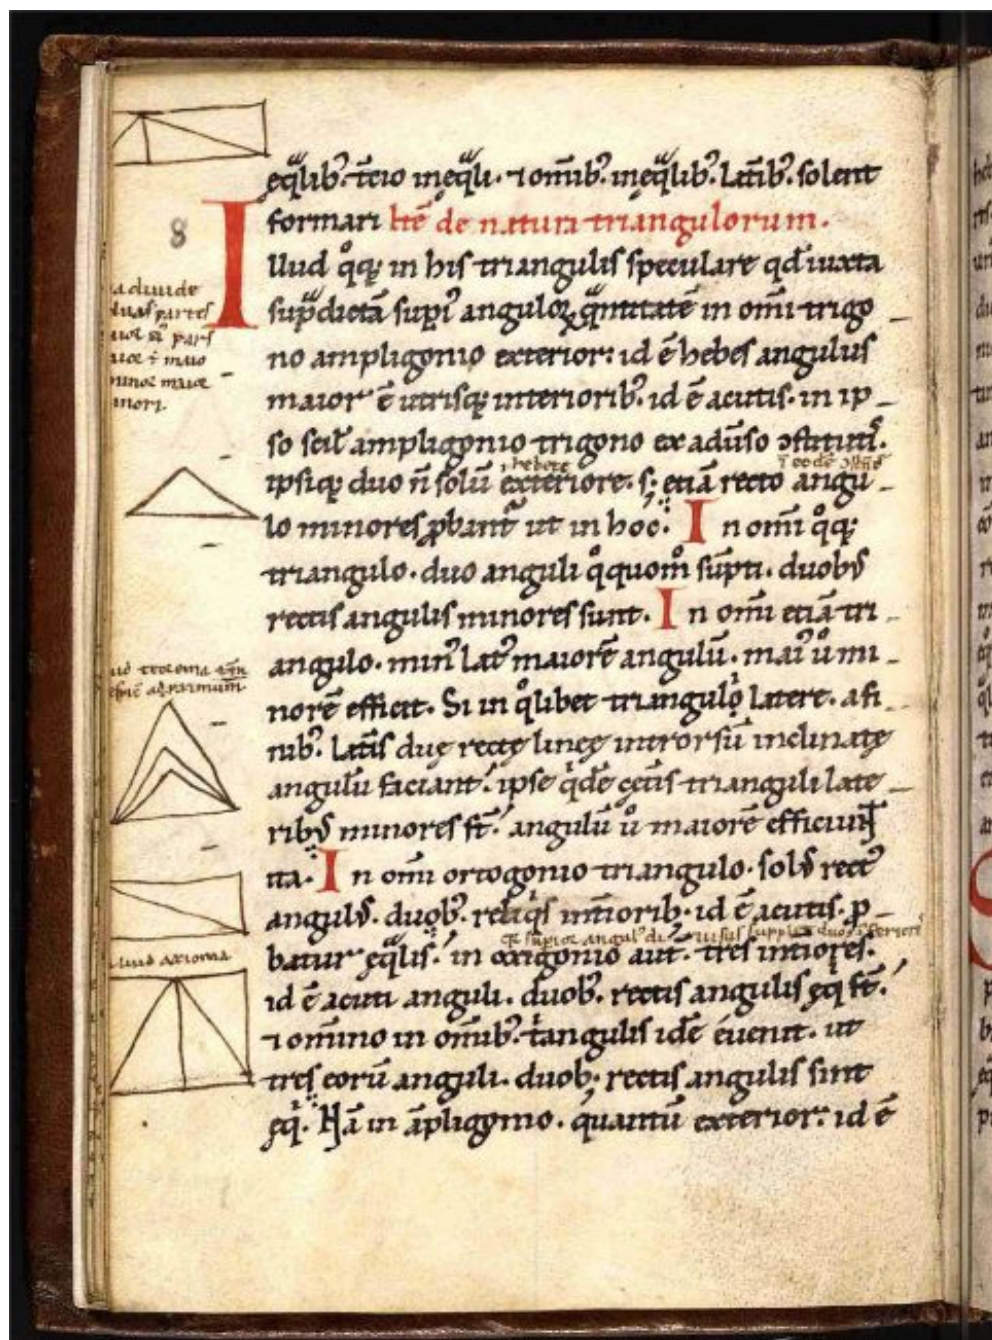 eq̃lib᷒. t̄cio ineq̃li. ⁊ om̄ib᷒. ineq̃lib᷒. lat̄ib᷒. solent
formari Itē de natura triangulorum.
Illud qͦq; in his triangulis speculare qđ iuxta
sup̃dictã supi᷒ anguloꝝ q̃ntitatē in om̄i trigo
no ampligonio exterior: id ē hebes angulus
maior ē utrisq; interiorib᷒. id ē acutis. in ip
so scil̄ ampligonio trigono ex aduso ↄstituti᷒.
hebete
ipsiq; duo n̄ solū exteriore. s; etiā recto angu
lo minores ꝓbant᷒ ut in hoc. In om̄i qͦq;
triangulo. duo anguli qͦquom̊ sūpti. duob᷒
rectis angulis minores sunt. In om̄i etiā tri
angulo. min᷒ lat᷒ maiorē angulū. mai᷒ ů mi
norē efficit. Si in qͦlibet trianguli latere. a fi
nib᷒. lat̄is duę rectę linęę introrsū inclinatę
angulū faciant. ipse qͥdē cęt̄is trianguli late
rib᷒ minores st̄. angulū ů maiorē efficiunt
ita. In om̄i ortogonio triangulo. sol᷒ rect᷒
angul᷒. duob᷒. reliqͥs int̄iorib᷒. id ē acutis. ꝓ
batur ęq̃lis. in oxigonio aut̄. tres int̄iores.
id ē acuti anguli. duob᷒. rectis angulis ęq̄ st̄.
⁊ omnino in om̄ib᷒. tͥangulis idē euenit. ut
tres eorū anguli. duob; rectis angulis sint
ęq̄. Nā in āpligonio. quantū exterior: id ē
8
a diuide
duas partes
pars
maio
minor maior
minori.
teorema
aliud axioma